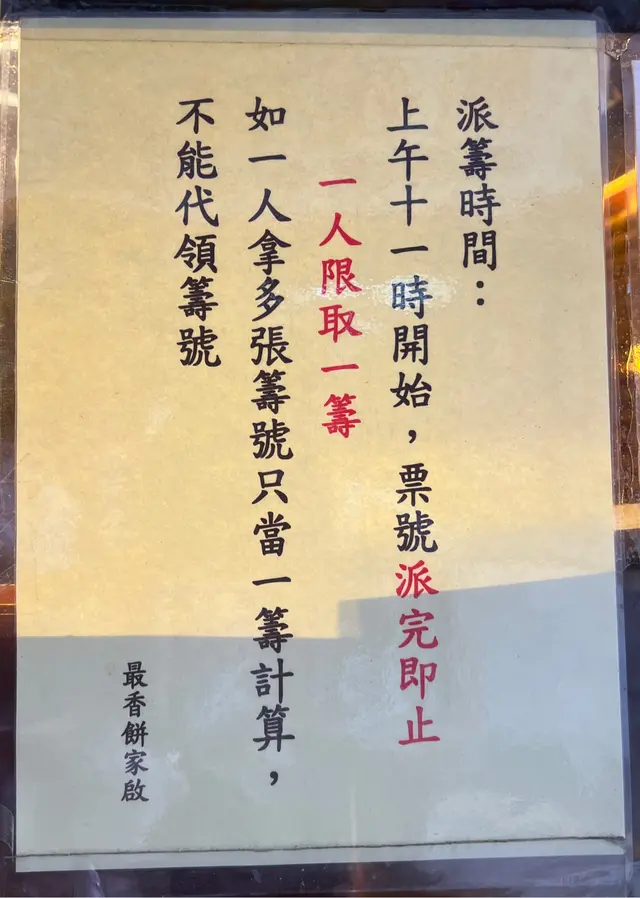 派籌時間：
上午十一時開始，票號派完即止
一人限取一籌
如一人拿多張籌號只當一籌計算，
不能代領籌號
最香餅家啟